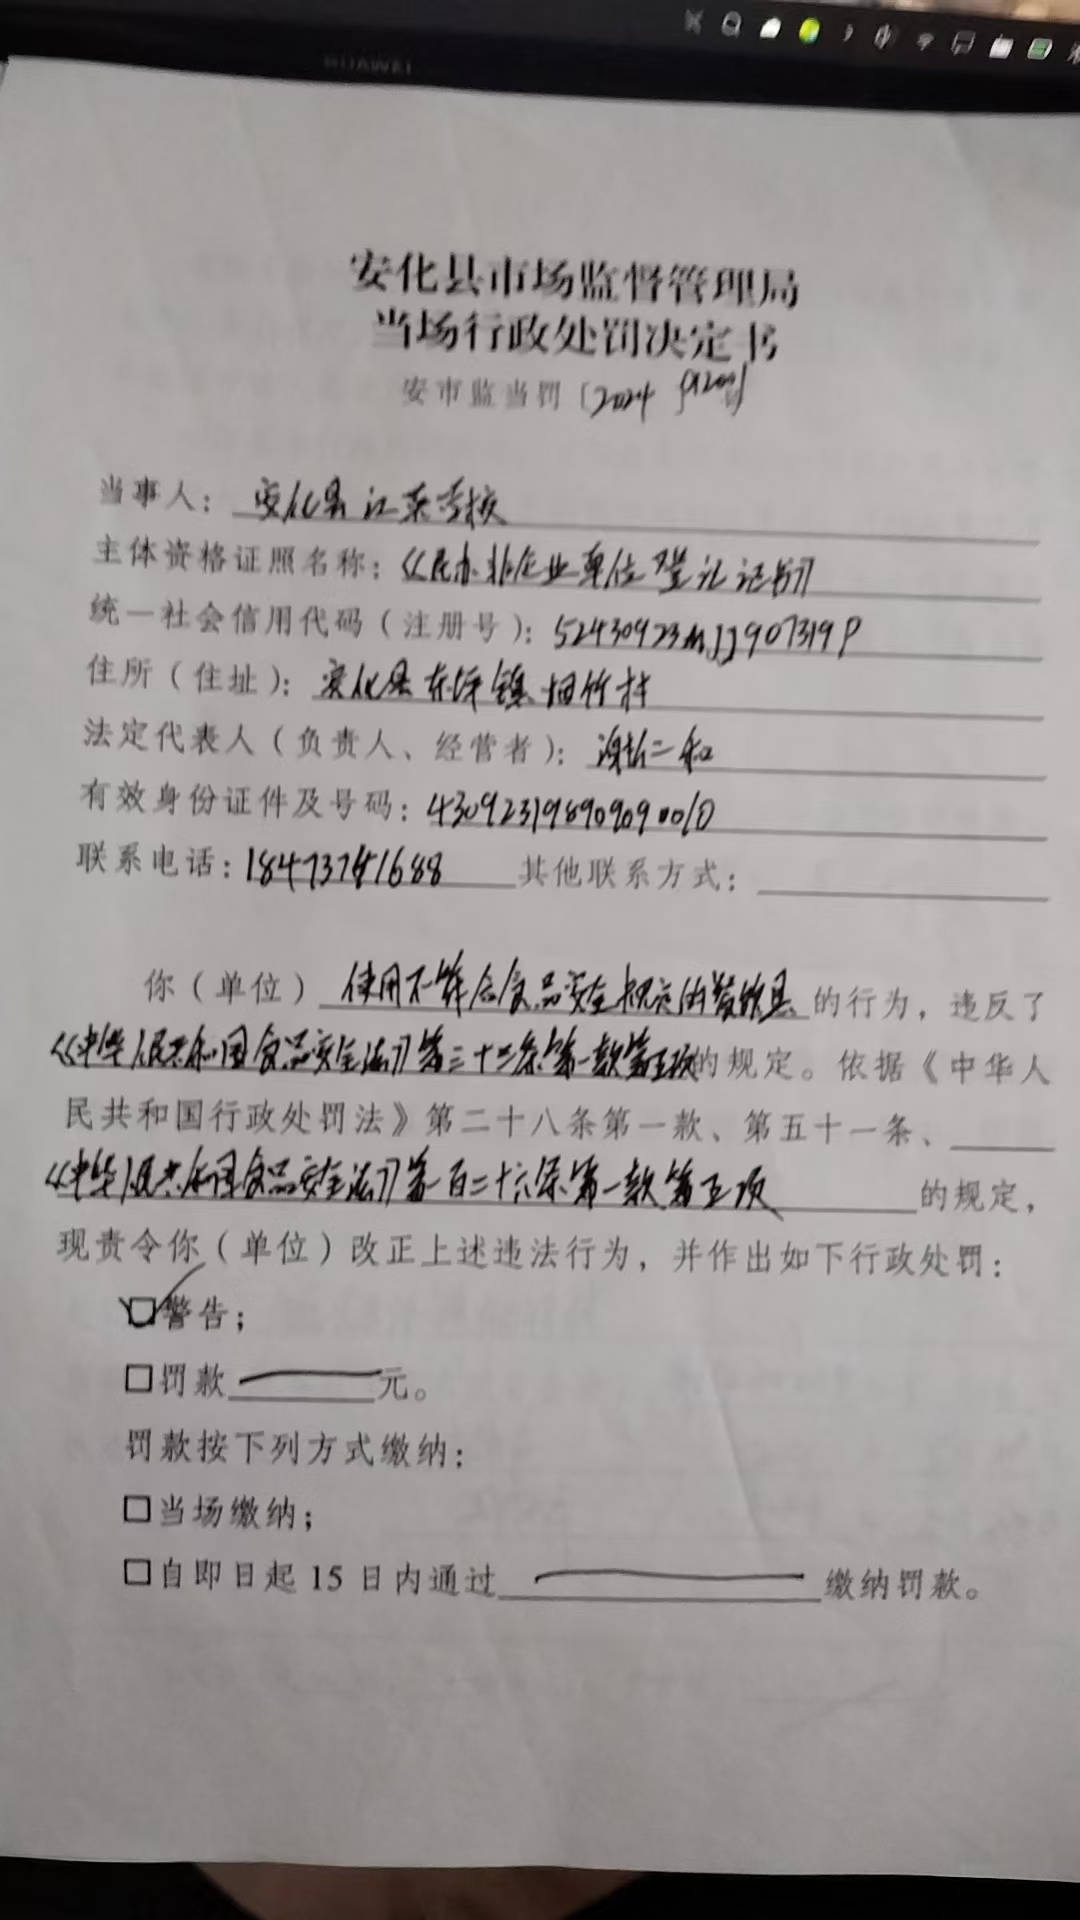 HUAWEI
安化县市场监督管理局
当场行政处罚决定书
安市监当罚〔2024
当事人：安化县江英学校
主体资格证照名称：《民办非企业单位登记证书》
统一社会信用代码（注册号）：52430923MJJ907319P
住所（住址）：安化县东坪镇 竹村
法定代表人（负责人、经营者）：谌 二和
有效身份证件及号码：430923198909090010
联系电话：18473741688 其他联系方式：
你（单位）使用不符合食品安全规定的餐饮具的行为，违反了
《中华人民共和国食品安全法》第三十三条第一款第五项的规定。依据《中华人
民共和国行政处罚法》第二十八条第一款、第五十一条、
《中华人民共和国食品安全法》第一百二十六条第一款第五项的规定，
现责令你（单位）改正上述违法行为，并作出如下行政处罚：
☑警告；
□罚款 元。
罚款按下列方式缴纳：
□当场缴纳；
□自即日起15日内通过 缴纳罚款。